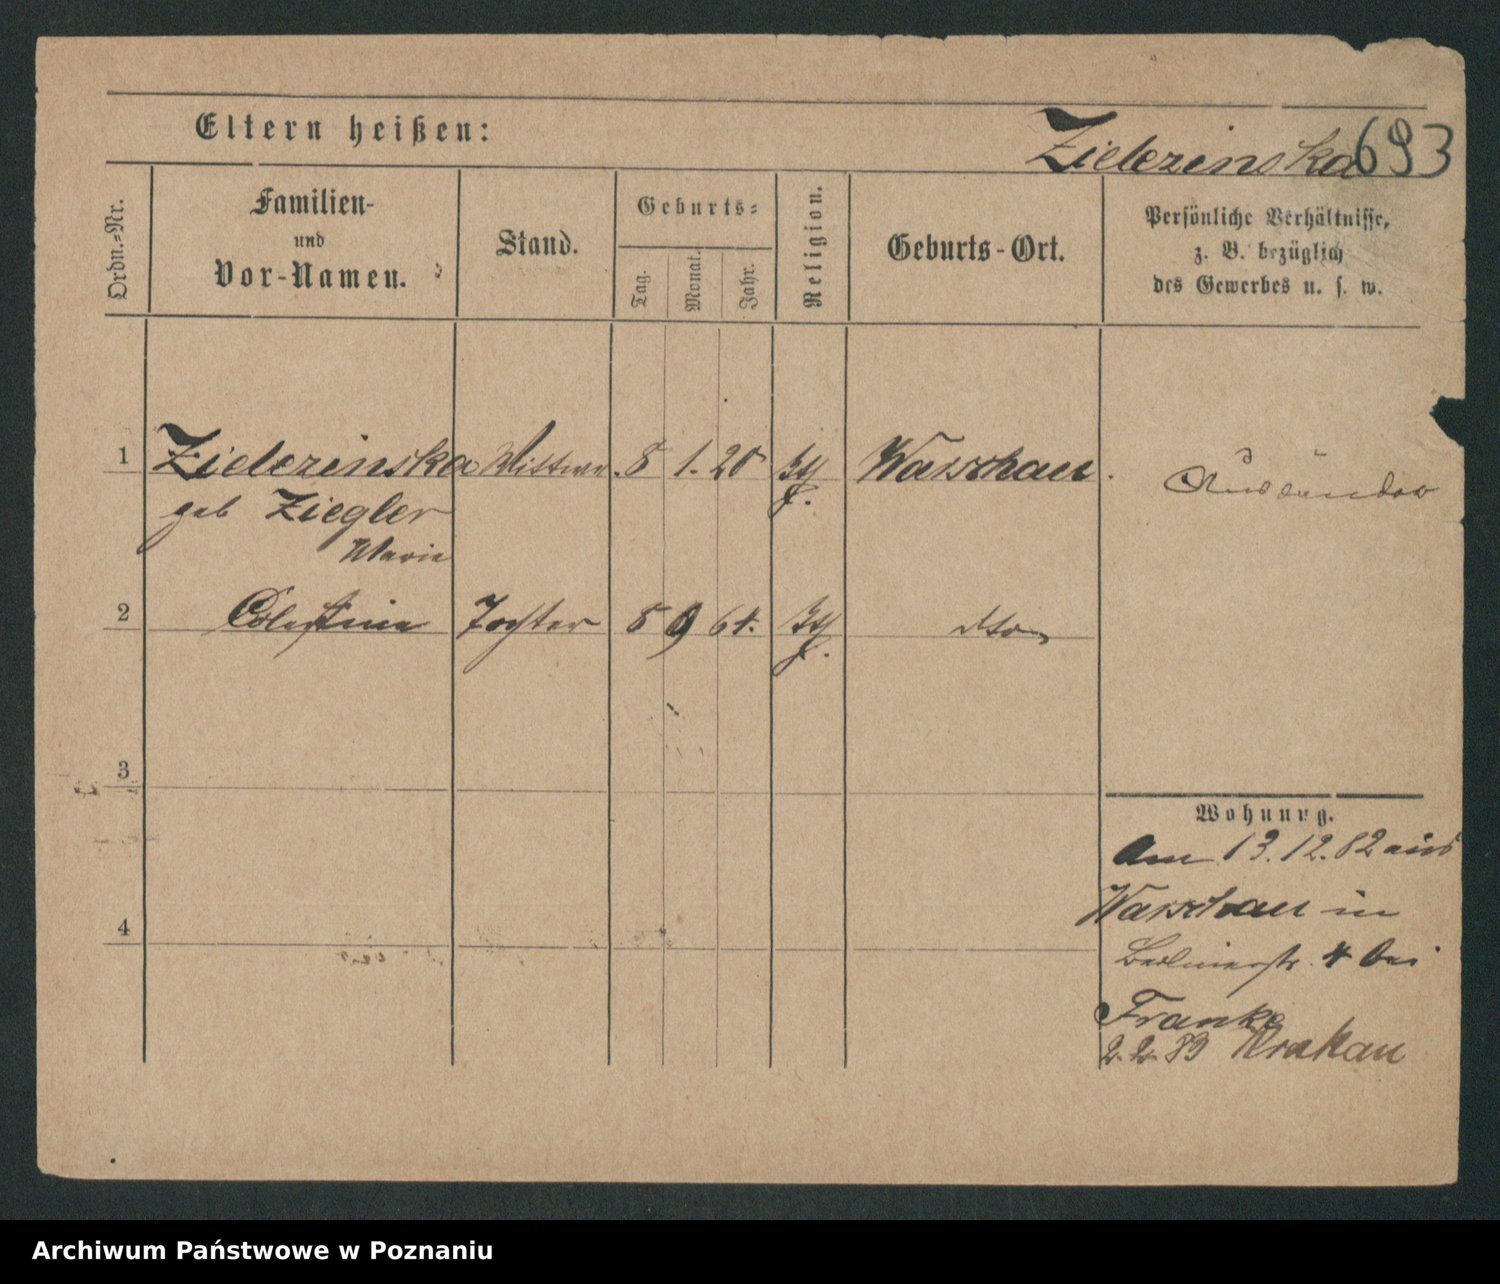 Eltern heißen:
Zielezinska 693
Ordn.=Nr.
Familien-
und
Vor-Namen.
Stand.
Geburts=
Tag.
Monat.
Jahr.
Religion.
Geburts-Ort.
Persönliche Verhältnisse,
z. B. bezüglich
des Gewerbes u. s. w.
1 Zielezinska Wittwe. 8 1. 20 Warschau. Ausländer
geb Ziegler
Marie
2 Cölestine Tochter 5 9 64. dto
3
4
Wohnung.
Am 13.12.82 aus
Warschau in
Berlinerstr. 4 bei
Franke
2.2.83 Krakau
Archiwum Państwowe w Poznaniu